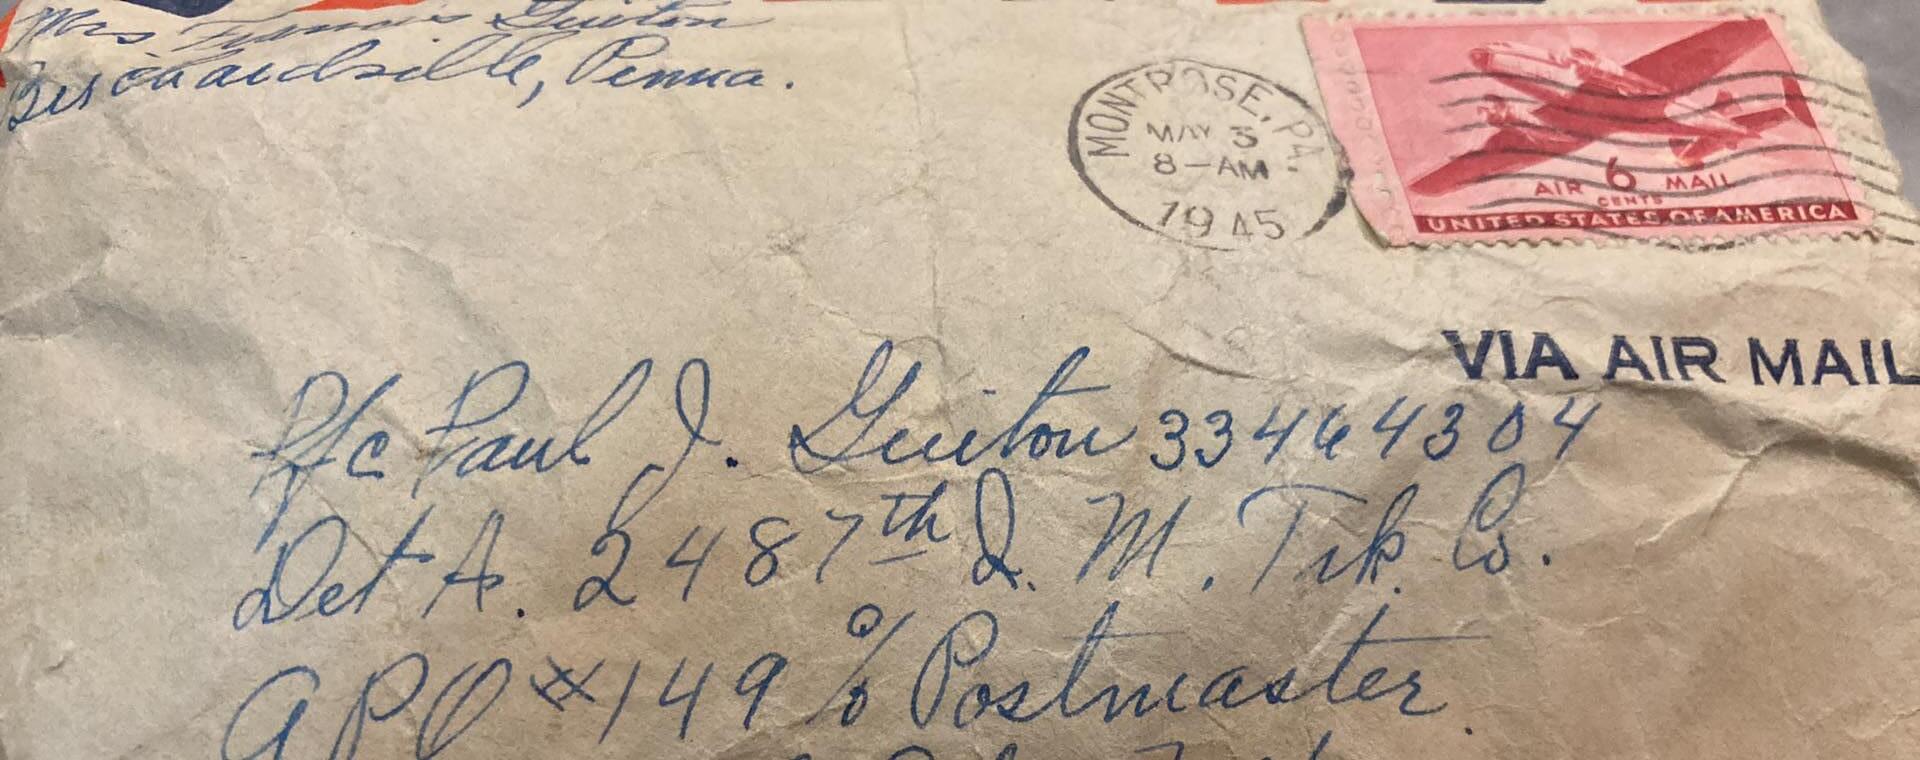 Mrs Francis Guiton
Birchardsville, Penna.
MONTROSE, PA.
MAY 3
8-AM
1945
AIR 6 MAIL
CENTS
UNITED STATES OF AMERICA
VIA AIR MAIL
Pfc Paul J. Guiton 33464304
Det A. 2487th Q. M. Trk. Co.
APO #149 % Postmaster